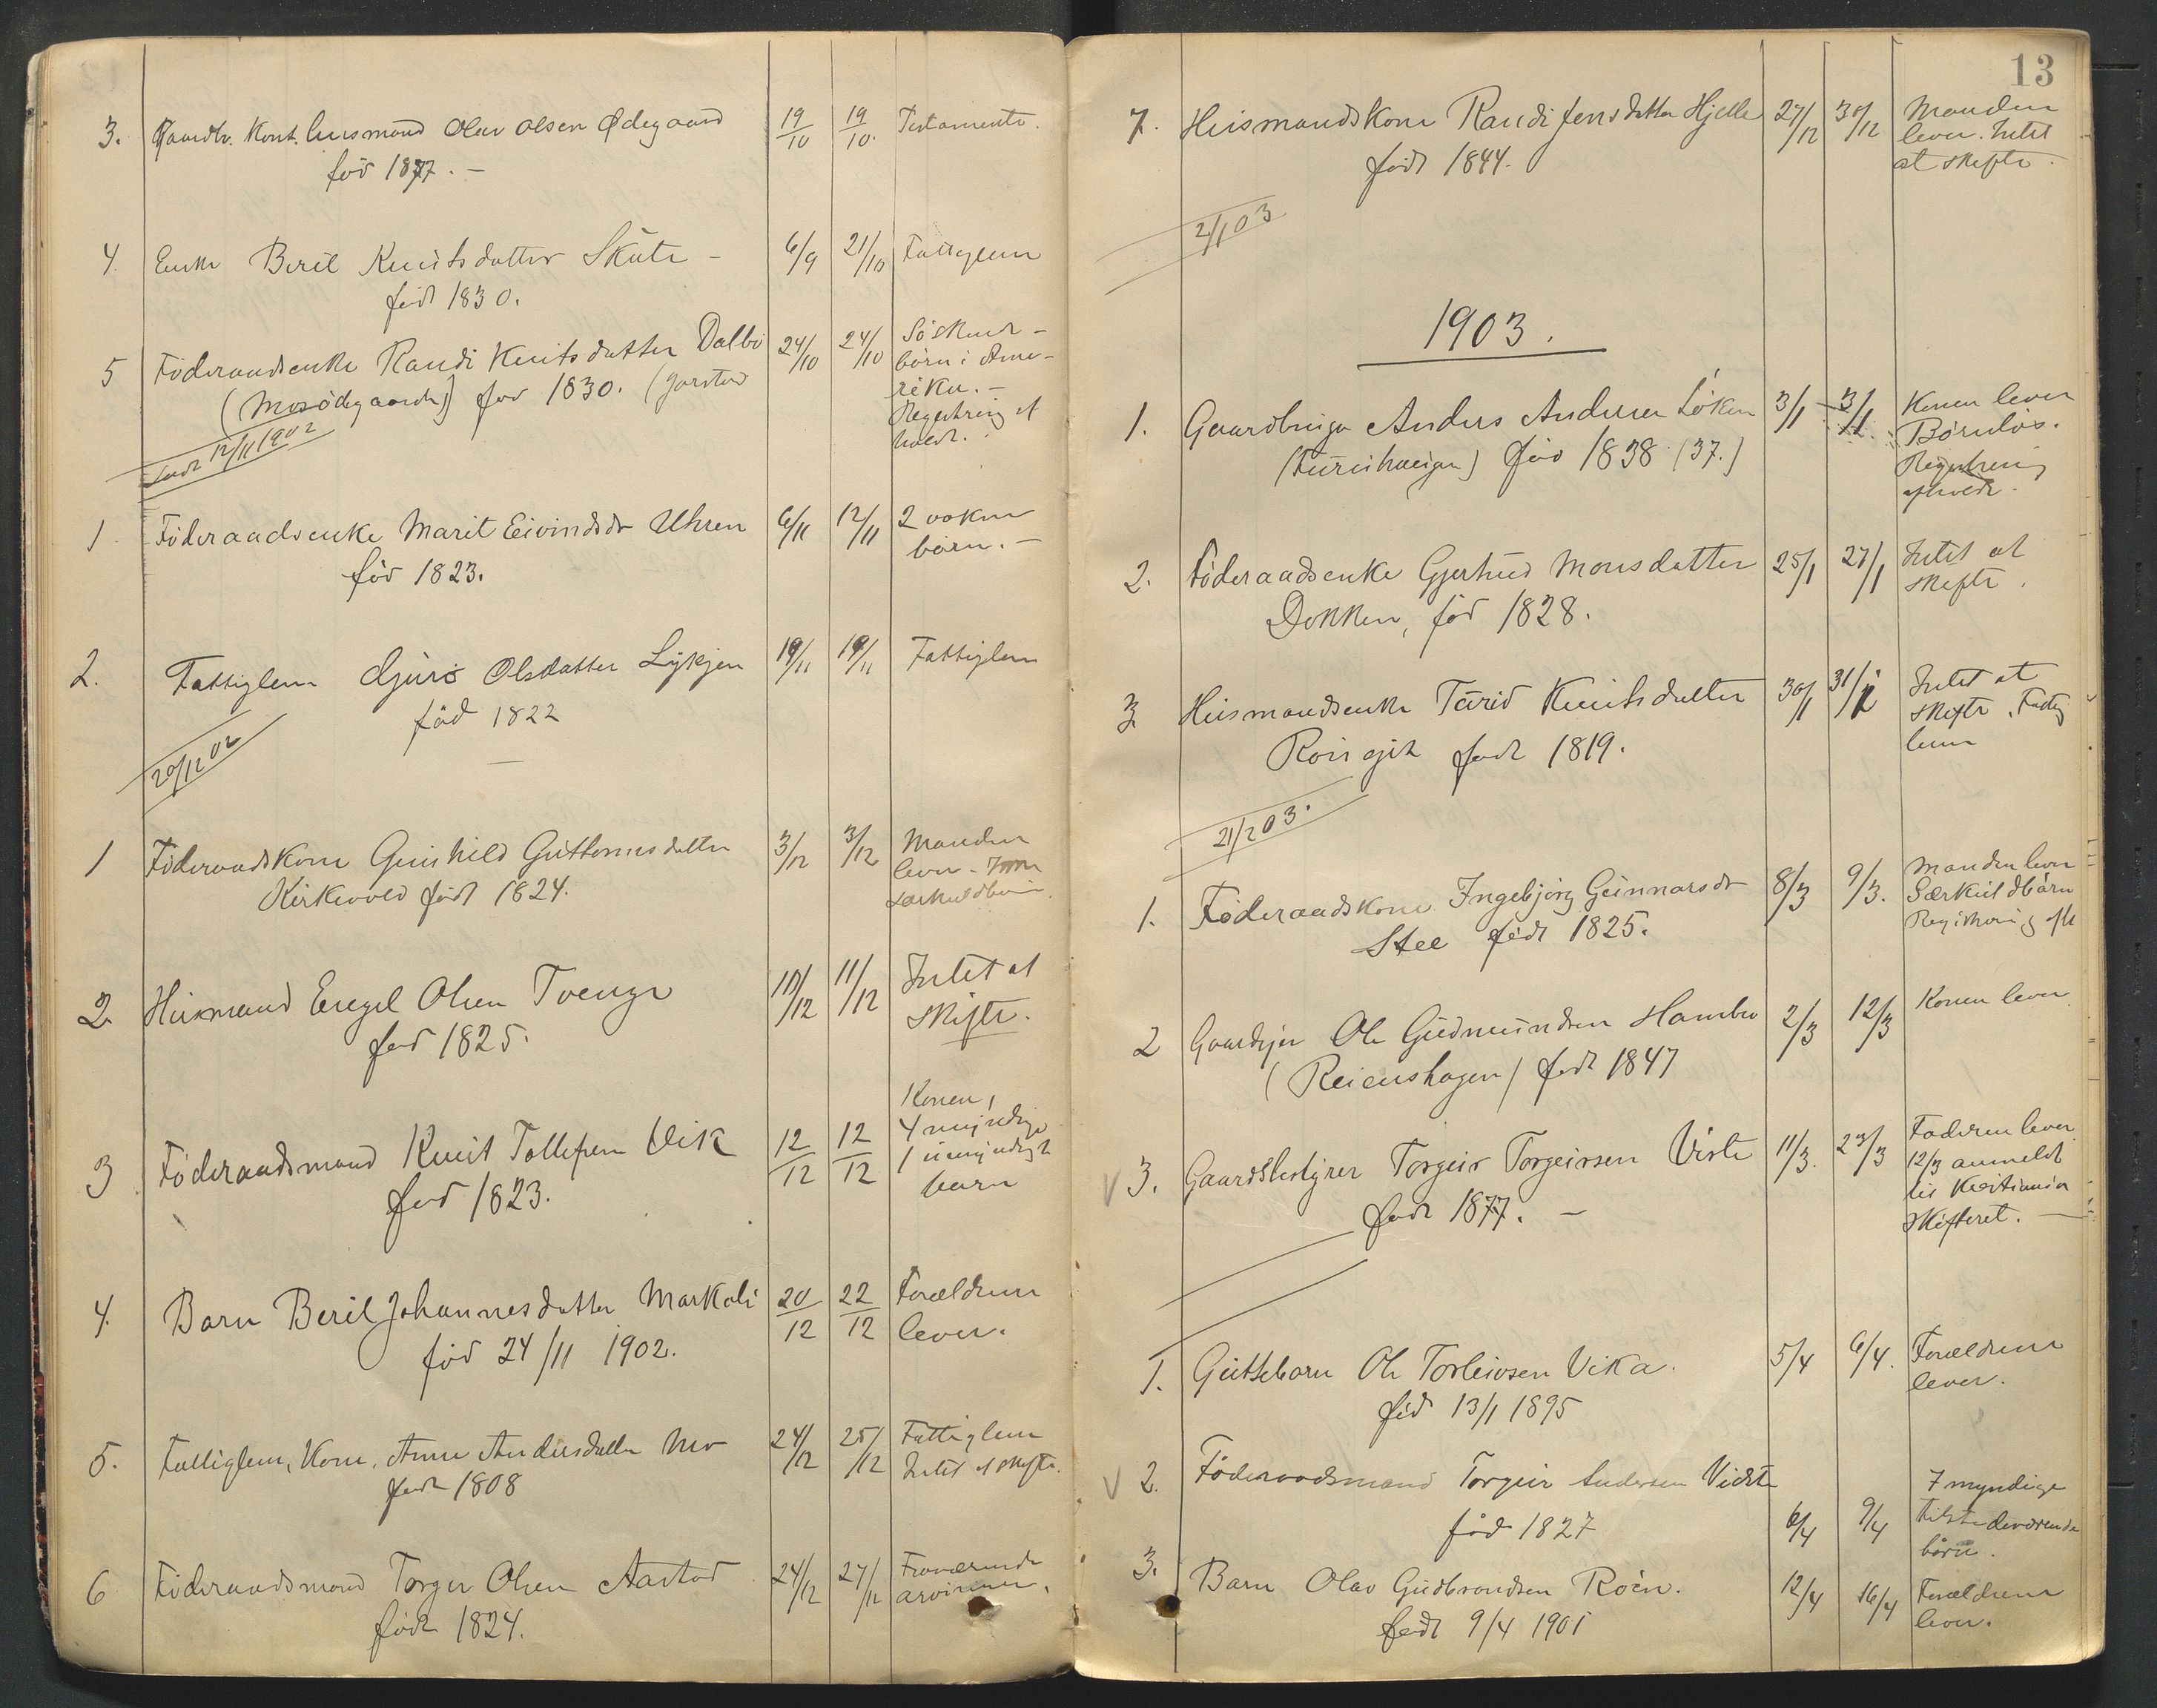 3. Gaardbr. Kont. husmand Olav Olsen Ødegaard 19/10 19/10. Testamente.
fød 1877. –
4. Enke Berit Knutsdatter Skute – 6/9 21/10 Fattiglem
født 1830.
5 Föderaadsenke Randi Knutsdatter Dalbö 24/10 24/10 Söskend-
börn i Ame-
(Mosödegaarden) fød 1830. (Jorstad rika. –
Registrering af
holdt.
Sendt 12/11 1902
1 Föderaadsenke Marit Eivindsdr Uhren 6/11 12/11 2 voksne
börn. –
fød 1823.
2. Fattiglem Gjurö Olsdatter Lykjen 19/11 19/11 Fattiglem
fød 1822
20/12 02
1 Föderaadskone Gunhild Guttormsdatter 3/12 3/12 Manden
lever.
Kirkevold født 1824. særkuldbörn.
2. Husmand Engel Olsen Tvenge 10/12 11/12 Intet at
skifte.
fød 1825.
3 Föderaadsmand Knut Tollefsen Vik 12/12 12/12 Konen,
4 myndige
1 umyndigt
barn
fød 1823.
4. Barn Berit Johannesdatter Markali 20/12 22/12 Forældrene
lever.
fød 24/11 1902.
5. Fattiglem, Kone, Anne Andersdatter Mo 24/12 25/12 Fattiglem
Intet at skifte.
født 1808
6 Föderaadsmand Torger Olsen Aastad 24/12 27/12 Fraværende
arvinger.
født 1824.
13
7. Husmandskone Randi Jensdatter Hjelle 27/12 30/12 Manden
lever. Intet
at skifte.
født 1844.
2/1 03
1903.
1. Gaardbruger Anders Andersen Löken 3/1 3/1 Konen lever
Börnlös.
(Turishaugen) fød 1838 (37.) Registrering
afholdt.
2. Föderaadsenke Gjertrud Monsdatter 25/1 27/1 Intet at
skifte.
Dokken, fød 1828.
3 Husmandsenke Turid Knutsdatter 30/1 31/1 Intet at
skifte, Fattig
lem
født 1819.
21/2 03.
1. Föderaadskone Ingebjörg Gunnarsdr 8/3 9/3. Manden lever
Særkuldbörn
Stee født 1825. Registrering afh
2 Gaardejer Ole Gudmundsen Hambro 2/3 12/3 Konen lever
(Reienshagen) født 1847
V 3. Gaardsbestyrer Torgeir Torgeirsen Viste 11/3. 23/3 Faderen lever
12/3 anmeldt
til Kristiania
Skifteret. –
født 1877. –
1. Guttebarn Ole Torleivsen Vika. 5/4 6/4. Forældrene
lever.
fød 13/1 1895
V 2. Föderaadsmand Torgeir Andersen Viste
7 myndige
fød 1827 6/4 9/4 tilstedeværende
börn.
3. Barn Olav Gudbrandsen Roèn. 12/4 16/4 Forældrene
lever.
født 9/4 1901